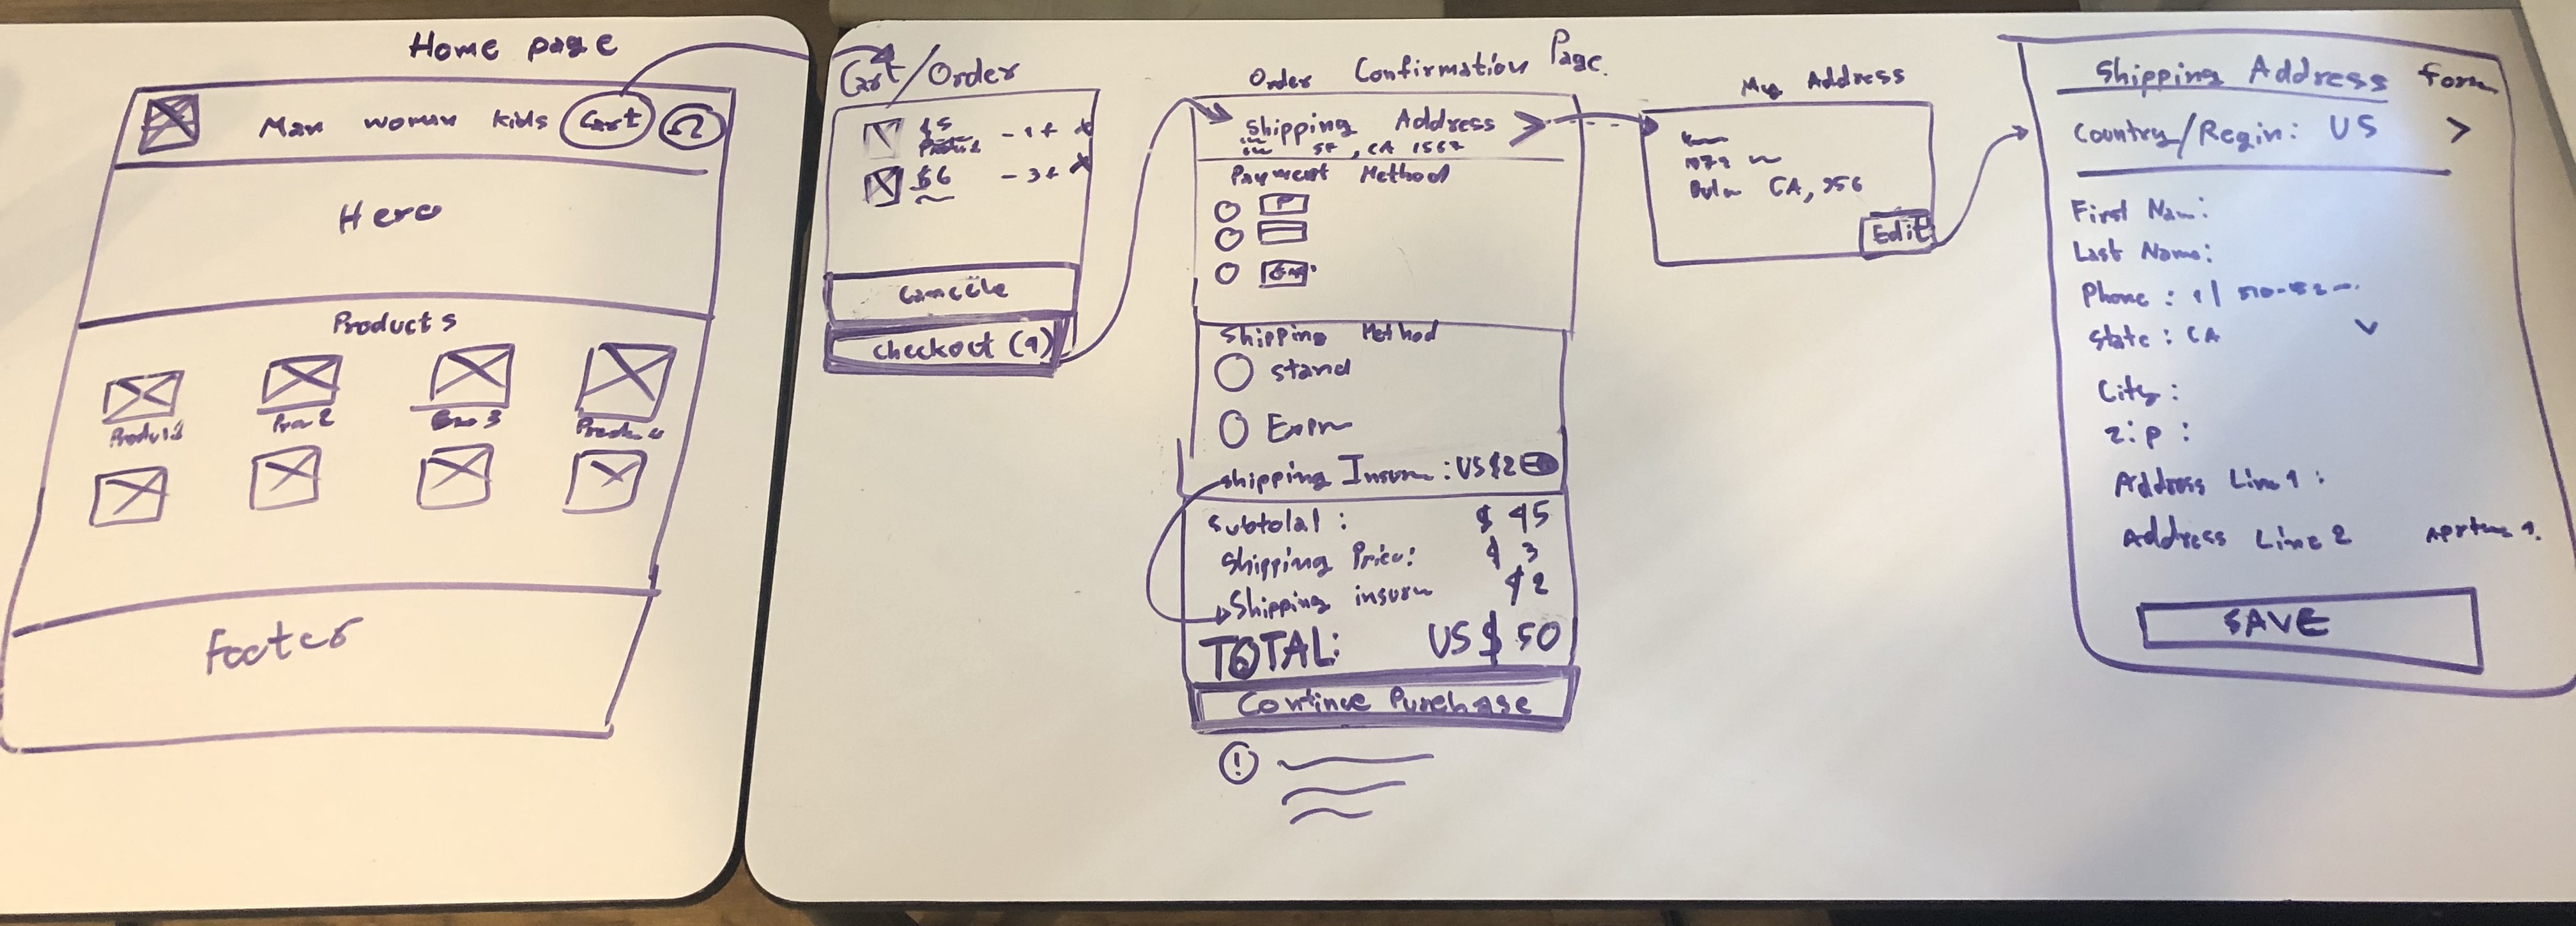 Home page
Man woman kids Cart
Hero
Products
Footer
Cart/Order
$5
- 1 + x
$6
- 3 + x
Cancele
checkout (9)
Order Confirmation Page.
Shipping Address >
SF, CA 1567
Payment Method
P
Shipping Method
Stand
Shipping Insurn : US $2
Subtotal : $ 45
Shipping Price: $ 3
Shipping insurn $2
TOTAL: US $ 50
Continue Purchase
!
My Address
CA, 956
Edit
Shipping Address form
Country/Regin: US >
First Nam:
Last Name:
Phone : 1|
State : CA
City :
Zip :
Address Line 1 :
Address Line 2
SAVE